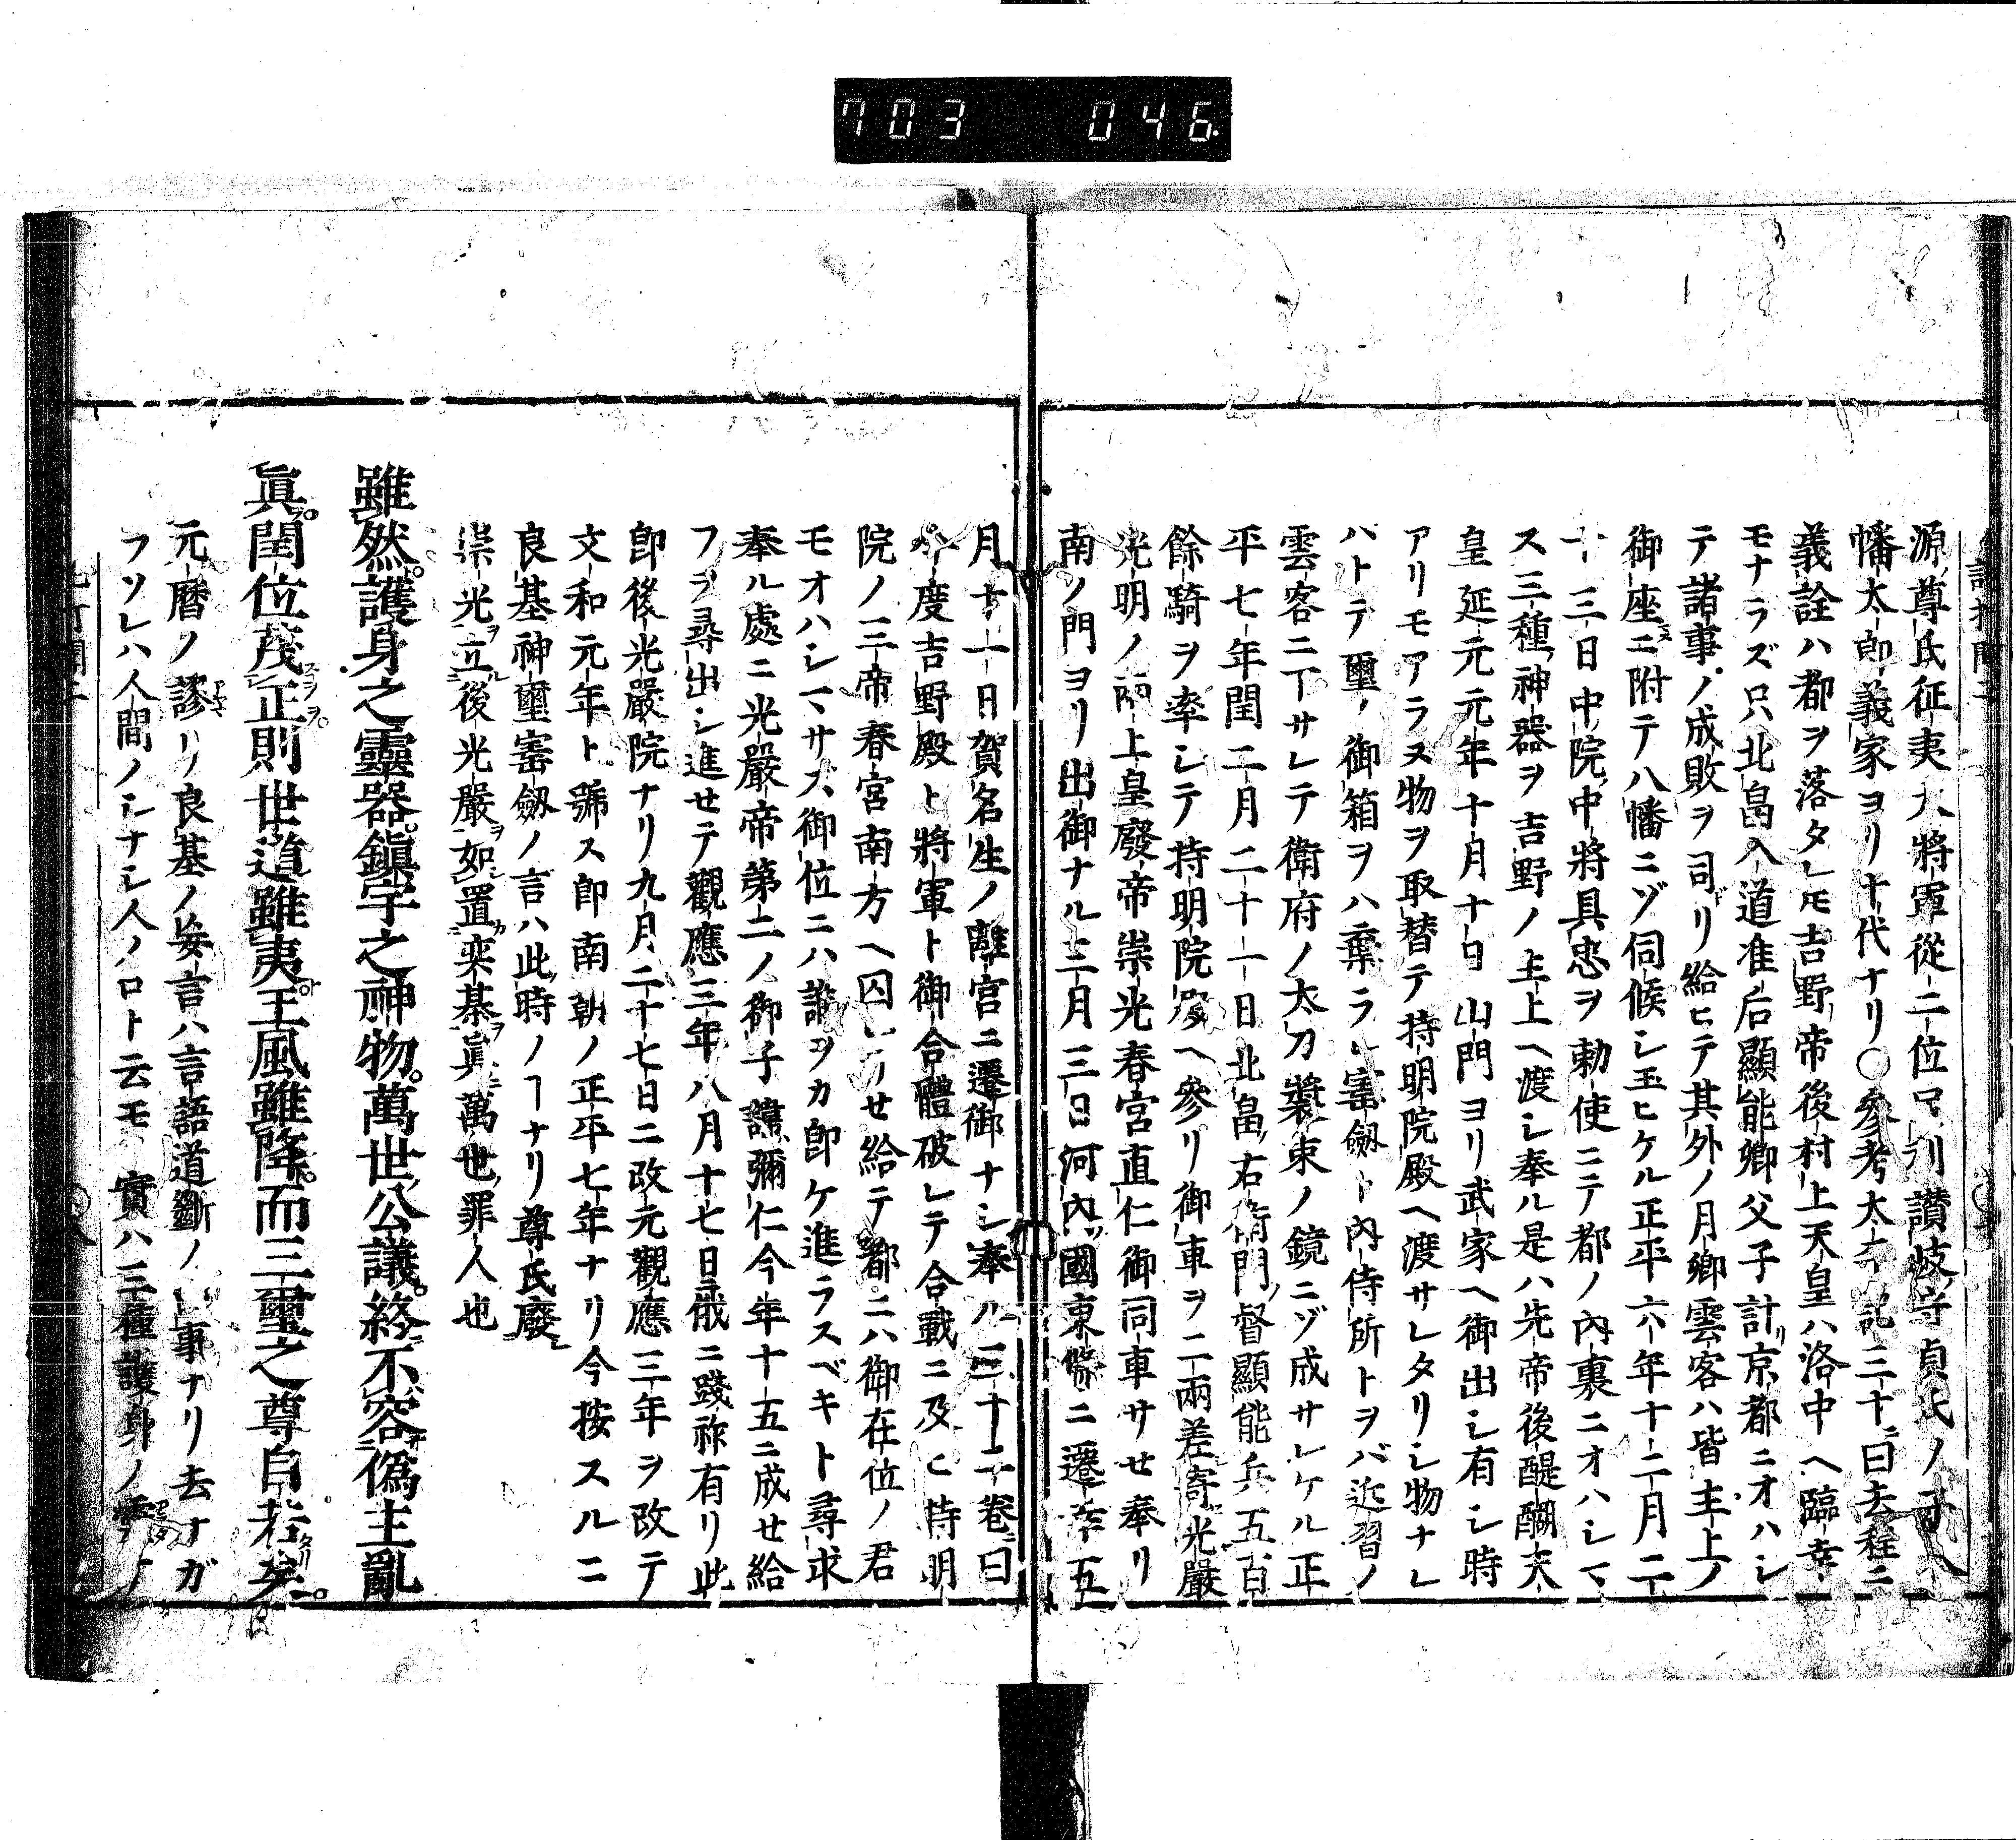 703 046
源尊氏征夷大將軍從二位モ判讃岐守貞氏ノ子
幡太郎義家ヨリ十代ナリ〇參考太平記三十ニ曰去程ニ
義詮ハ都ヲ落タレ𪜈吉野帝後村上天皇ハ洛中ヘ臨幸
モナラズ只北畠入道准后顯能卿父子計リ京都ニオハシ
テ諸事ノ成敗ヲ司リ給ヒテ其外ノ月卿雲客ハ皆主上ノ
御座ニ附テ八幡ニゾ伺候シ玉ヒケル正平六年十二月二
十三日中院中將具忠ヲ勅使ニテ都ノ內裏ニオハシマ
ス三種神器ヲ吉野ノ主上ヘ渡シ奉ル是ハ先帝後醍醐天
皇延元元年十月十日山門ヨリ武家ヘ御出シ有シ時
アリモアラヌ物ヲ取替テ持明院殿ヘ渡サレタリシ物ナレ
ハトテ璽ノ御箱ヲハ棄ラレ寳劔ト內侍所トヲバ近習ノ
雲客ニ下サレテ衛府ノ太刀裝束ノ鏡ニゾ成サレケル正
平七年閏二月二十一日北畠右衛門督顯能兵五百
餘騎ヲ率シテ持明院殿ヘ參リ御車ヲ二兩差寄光嚴
光明ノ兩上皇廢帝崇光春宮直仁御同車サセ奉リ
南ノ門ヨリ出御ナル三月三日河內國東條ニ遷幸五
月十一日賀名生ノ離宮ニ遷御ナシ奉ル三十二卷ニ曰
今度吉野殿ト將軍ト御合體破レテ合戰ニ及ヒ持明
院ノ三帝春宮南方ヘ囚レサセ給テ都ニハ御在位ノ君
モオハシマサス御位ニハ誰ヲカ卽ケ進ラスベキト尋求
奉ル處ニ光嚴帝第二ノ御子諱彌仁今年十五ニ成セ給
フヲ尋出シ進セテ觀應三年八月十七日俄ニ踐祚有リ此
卽後光嚴院ナリ九月二十七日ニ改元觀應三年ヲ改テ
文和元年ト號ス卽南朝ノ正平七年ナリ今按スルニ
良基神璽寳劔ノ言ハ此時ノヿナリ尊氏廢
崇光立後光嚴如置奕棊眞萬世罪人也
雖然護身之靈器鎭宇之神物萬世公議終不容僞主亂
眞閏位茂正則世道雖夷王風雖降而三璽之尊自若矣
元曆ノ謬リ良基ノ妄言ハ言語道斷ノ事ナリ去ナガ
フソレハ人間ノシナシ人ノロト云モ實ハ三種護身ノ靈